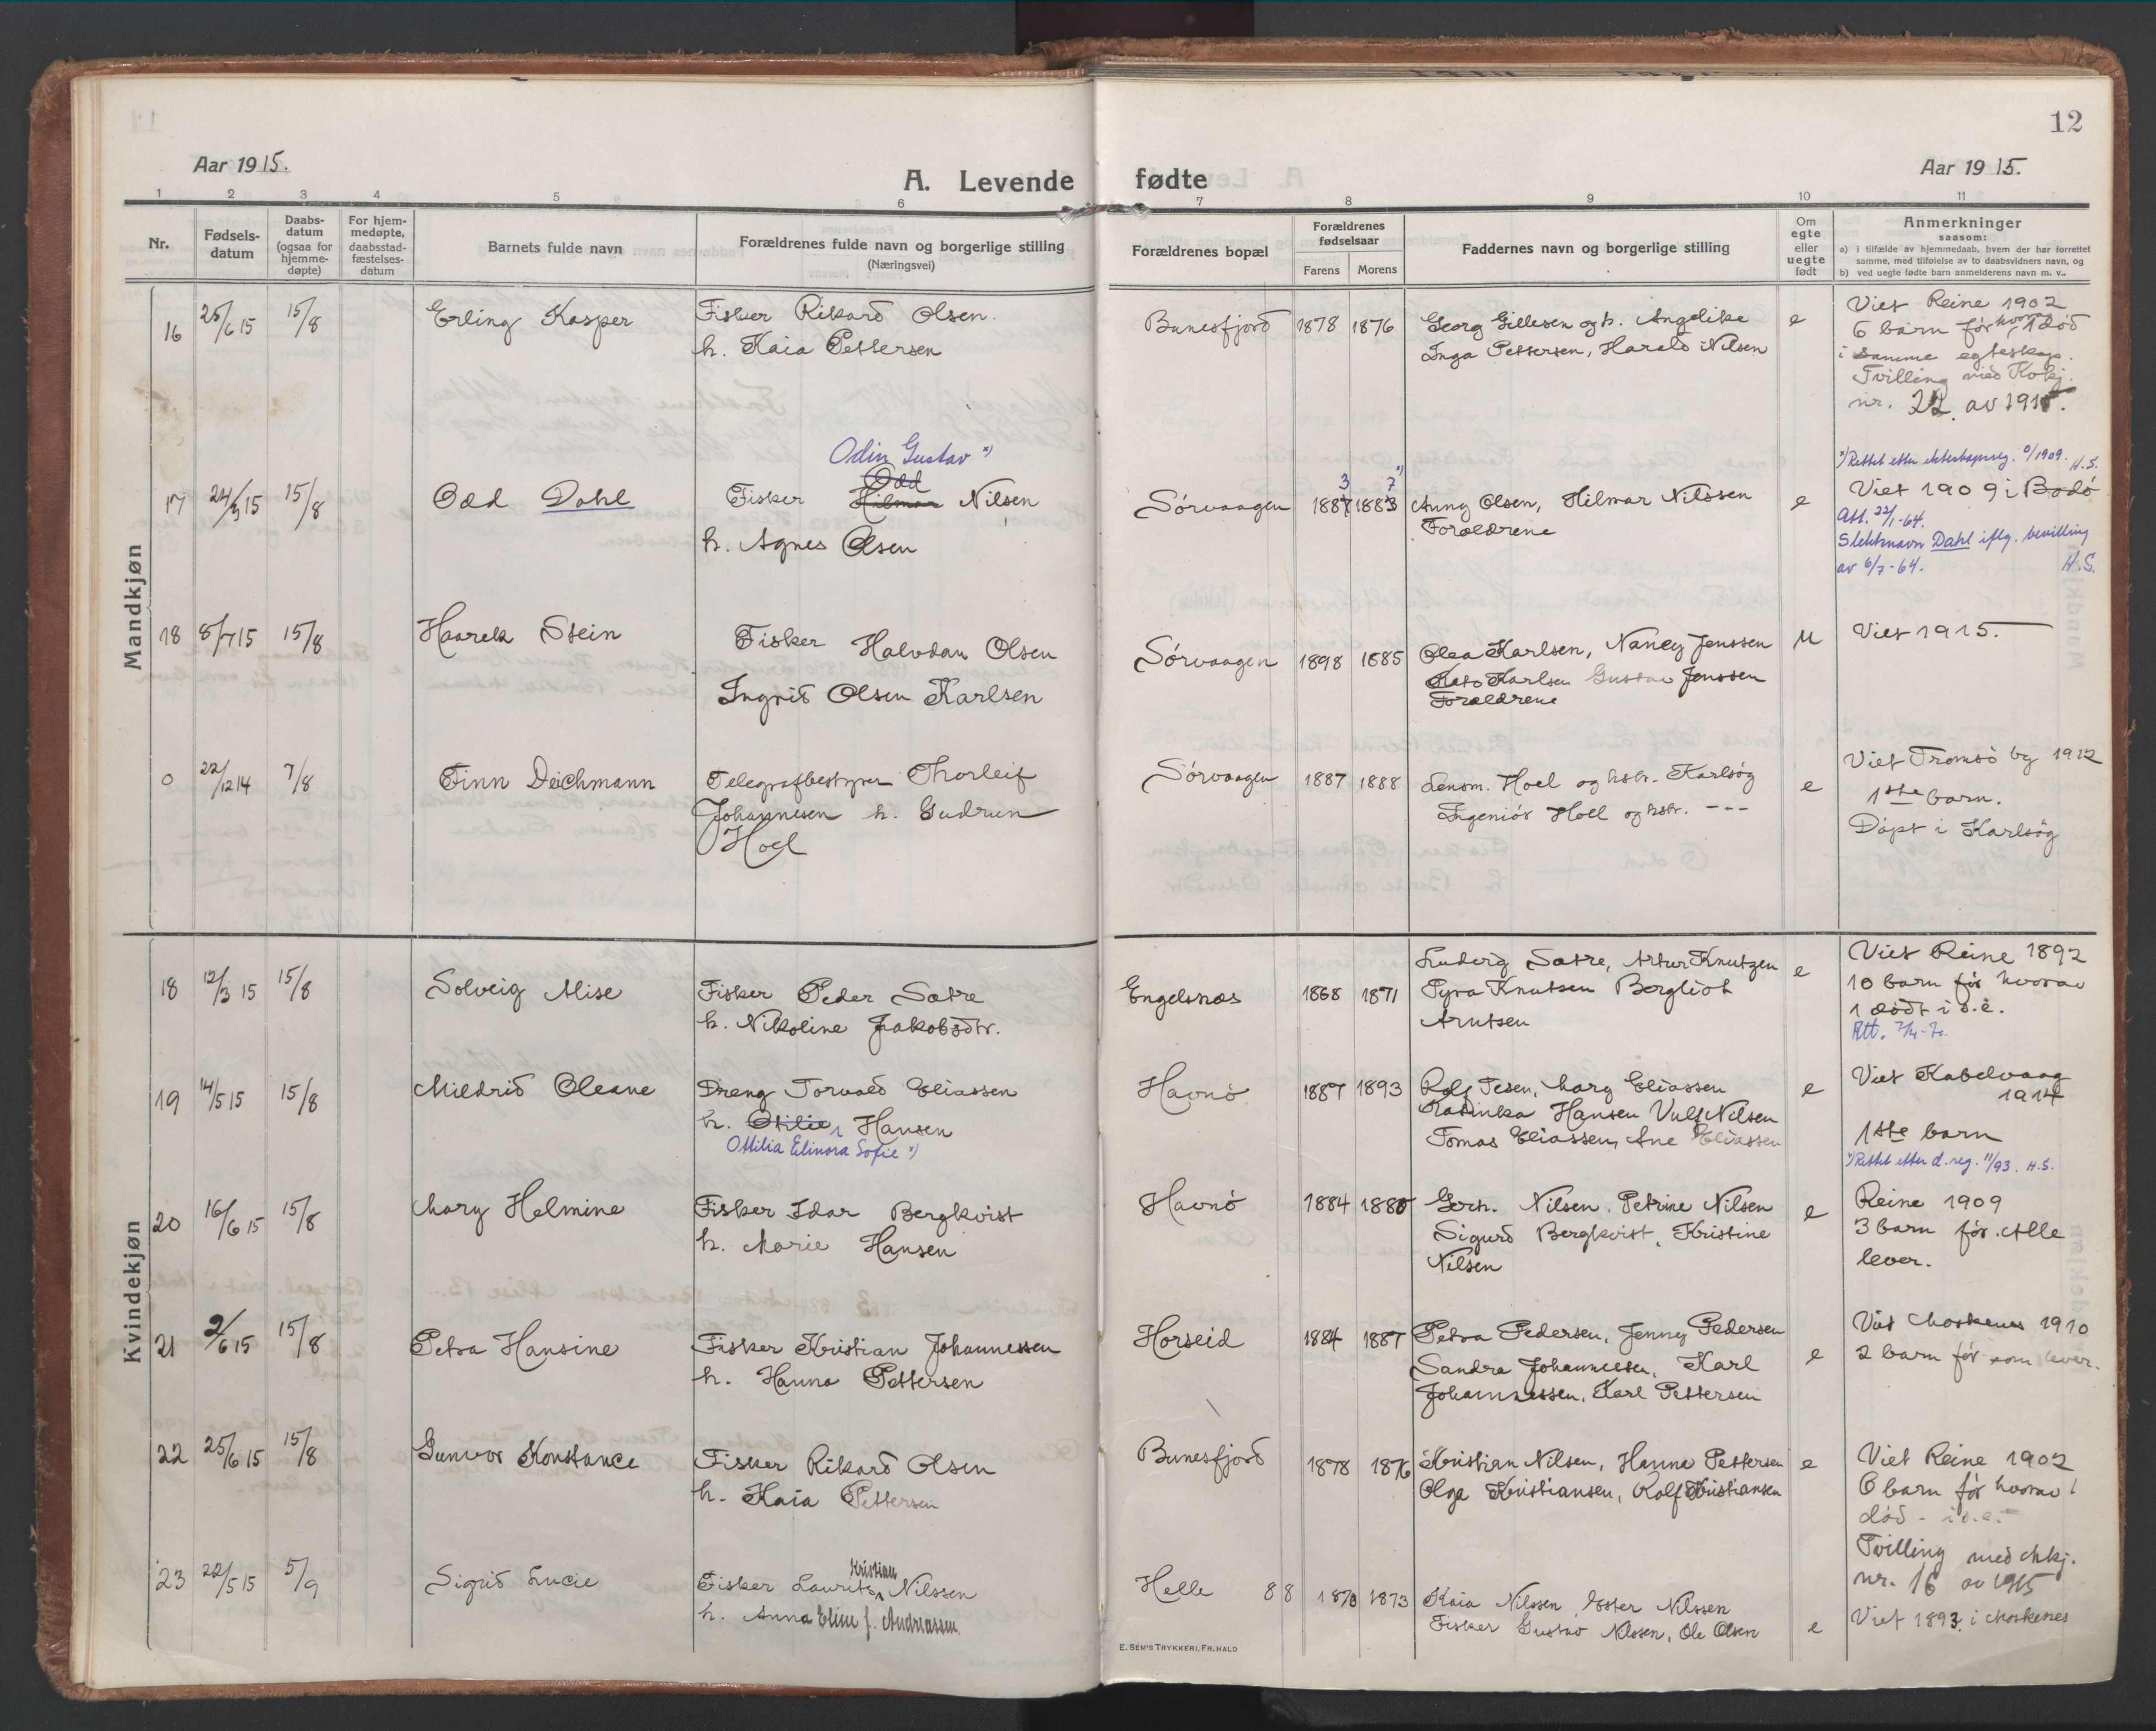 12
Aar 1915.
Aar 1915.
A. Levende fødte
1 2 3 4 5 6 7 8 9 10 11
Nr.
Fødsels-
datum
Daabs-
datum
(ogsaa for
hjemme-
døpte)
For hjem-
medøpte,
daabsstad-
fæstelses-
datum
Barnets fulde navn
Forældrenes fulde navn og borgerlige stilling
(Næringsvei)
Forældrenes bopæl
Forældrenes
fødselsaar
Farens
Morens
Faddernes navn og borgerlige stilling
Om
egte
eller
uegte
født
Anmerkninger
saasom:
a) i tilfælde av hjemmedaab, hvem der har forrettet
samme, med tilføielse av to daabsvidners navn, og
b) ved uegte fødte barn anmelderens navn m. v..
Mandkjøn
16 25/6 15 15/8 Erling Kasper
Fisker Rikard Olsen.
h. Kaia Pettersen
Bunesfjord 1878 1876
Georg Gillesen og h. Angelike
Inga Pettersen, Harald Nilsen
e
Viet Reine 1902
6 barn før hvorav 1 død
i samme egteskap.
Tvilling med Kvkj.
nr. 22 av 1915.
17 24/3 15 15/8 Odd Dahl
Odin Gustav ×)
Odd
Fisker Hilmar Nilsen
h. Agnes Olsen
Sørvaagen 1887 3 1883 7 ×)
Anny Olsen, Hilmar Nilssen
Forældrene
e
×) Rettet etter ekteskapsreg. 0/1909. H.S.
Viet 1909 i Bodø
Att. 22/1-64.
Slektsnavn Dahl iflg. bevilling
av 6/7-64. H.S.
18 8/7 15 15/8 Haarek Stein
Fisker Halvdan Olsen
Ingrid Olsen Karlsen
Sørvaagen 1898 1885
Olea Karlsen, Nancy Jenssen
Karlsen Gustav Jenssen
Forældrene
u
Viet 1915.
0 22/12 14 7/8 Finn Deichmann
Telegrafbestyrer Thorleif
Johannesen h. Gudrun
Hoel
Sørvaagen 1887 1888
Lensm. Hoel og hstr. Karlsøy
Ingeniør Hoel og hstr. - - -
e
Viet Tromsø by 1912
1ste barn.
Døpt i Karlsøy
Kvindekjøn
18 12/3 15 15/8 Solveig Alise
Fisker Peder Sætre
h. Nikoline Jakobsdtr.
Engelsnæs 1868 1871
Ludvig Sætre, Artur Knutzen
Pyra Knutsen Bergliot
Arntsen
e
Viet Reine 1892
10 barn før hvorav
1 dødt i s.e.
Att.
19 14/5 15 15/8 Mildrid Oleane
Dreng Torvald Eliassen
h. Otilie Hansen
Ottilia Elinora Sofie ×)
Havnø 1887 1893
Rolf Tesen, Mary Eliassen
Katinka Hansen Vulf Nilsen
Tomas Eliassen, Ane Eliassen
e
Viet Kabelvaag
1914
1ste barn
×) Rettet etter d. reg. 11/93. H.S.
20 16/6 15 15/8 Mary Helmine
Fisker Idar Bergkvist
h. Marie Hansen
Havnø 1884 1880
Gerh. Nilsen. Petrine Nilsen
Sigurd Bergkvist, Kristine
Nilsen
e
Reine 1909
3 barn før. Alle
lever.
21 2/6 15 15/8 Petra Hansine
Fisker Kristian Johannessen
h. Hanna Pettersen
Horseid 1884 1887
Petra Pedersen, Jenny Pedersen
Sandra Johannessen, Karl
Johannessen, Karl Pettersen
e
Viet Moskenes 1910
2 barn før som lever.
22 25/6 15 15/8 Gunvor Konstance
Fisker Rikard Olsen
h. Kaia Pettersen
Bunesfjord 1878 1876
Kristian Nilsen, Hanna Pettersen
Olga Kristiansen, Rolf Kristiansen
e
Viet Reine 1902
6 barn før hvorav 1
død - i s.e.
Tvilling med Mkj.
nr. 16 av 1915
23 22/5 15 5/9 Sigrid Lucie
Kristian
Fisker Laurits Nilssen
h. Anna Eline f. Andreassen
Helle 88 1870 1873
Kaia Nilssen, Ester Nilssen
Fisker Gustav Nilssen, Ole Olsen
e
Viet 1893 i Moskenes
E. SEM'S TRYKKERI, FR.HALD